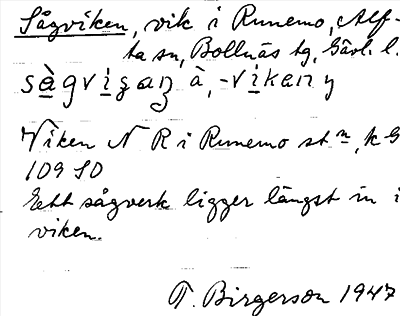 Sågviken, vik i Runemo, Alf-
ta sn, Bollnäs tg, Gävl. l.
Viken N R i Runemo st n, k G
109 SO
Ett sågverk ligger längst in i
viken.
T. Birgerson 1947